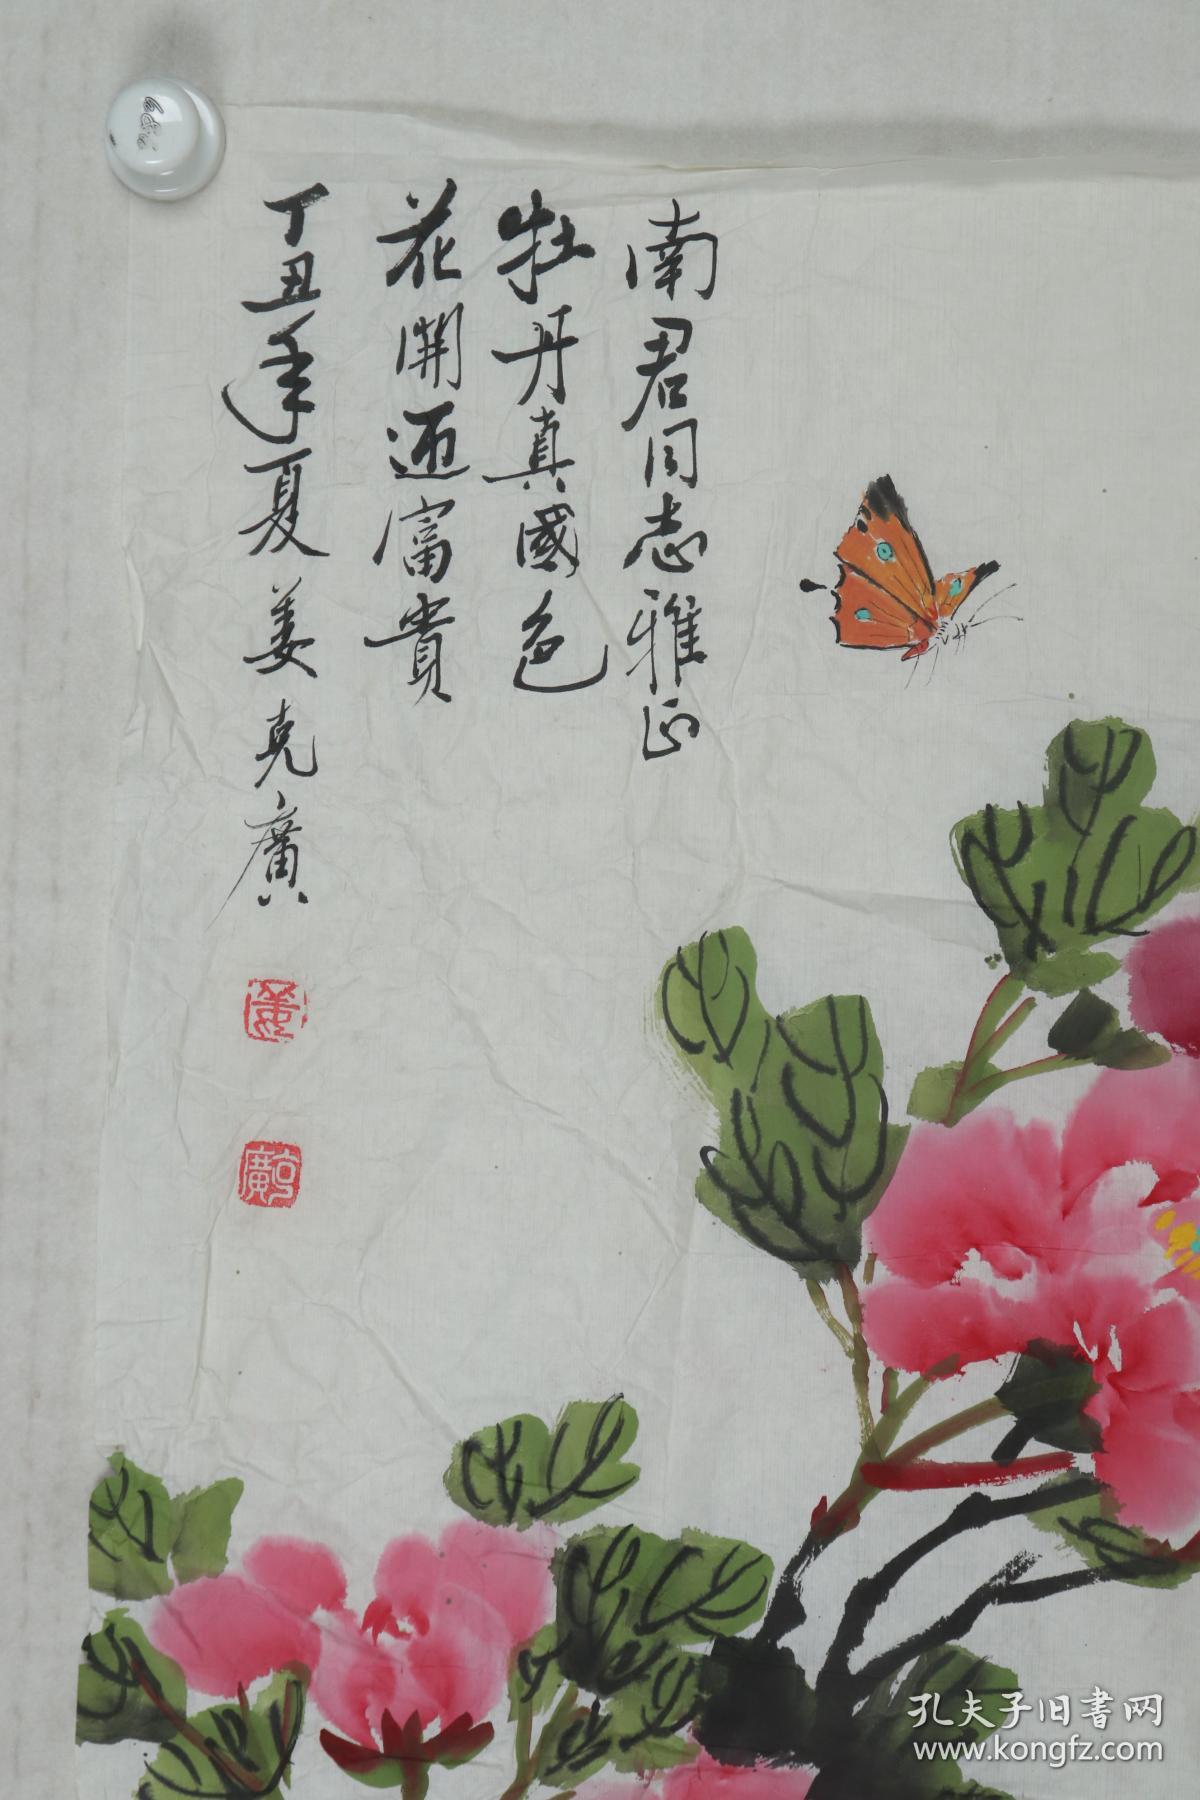 南君同志雅正
牡丹真國色
花開迎富貴
丁丑年夏姜克廣
姜
克廣
孔夫子旧书网
www.kongfz.com